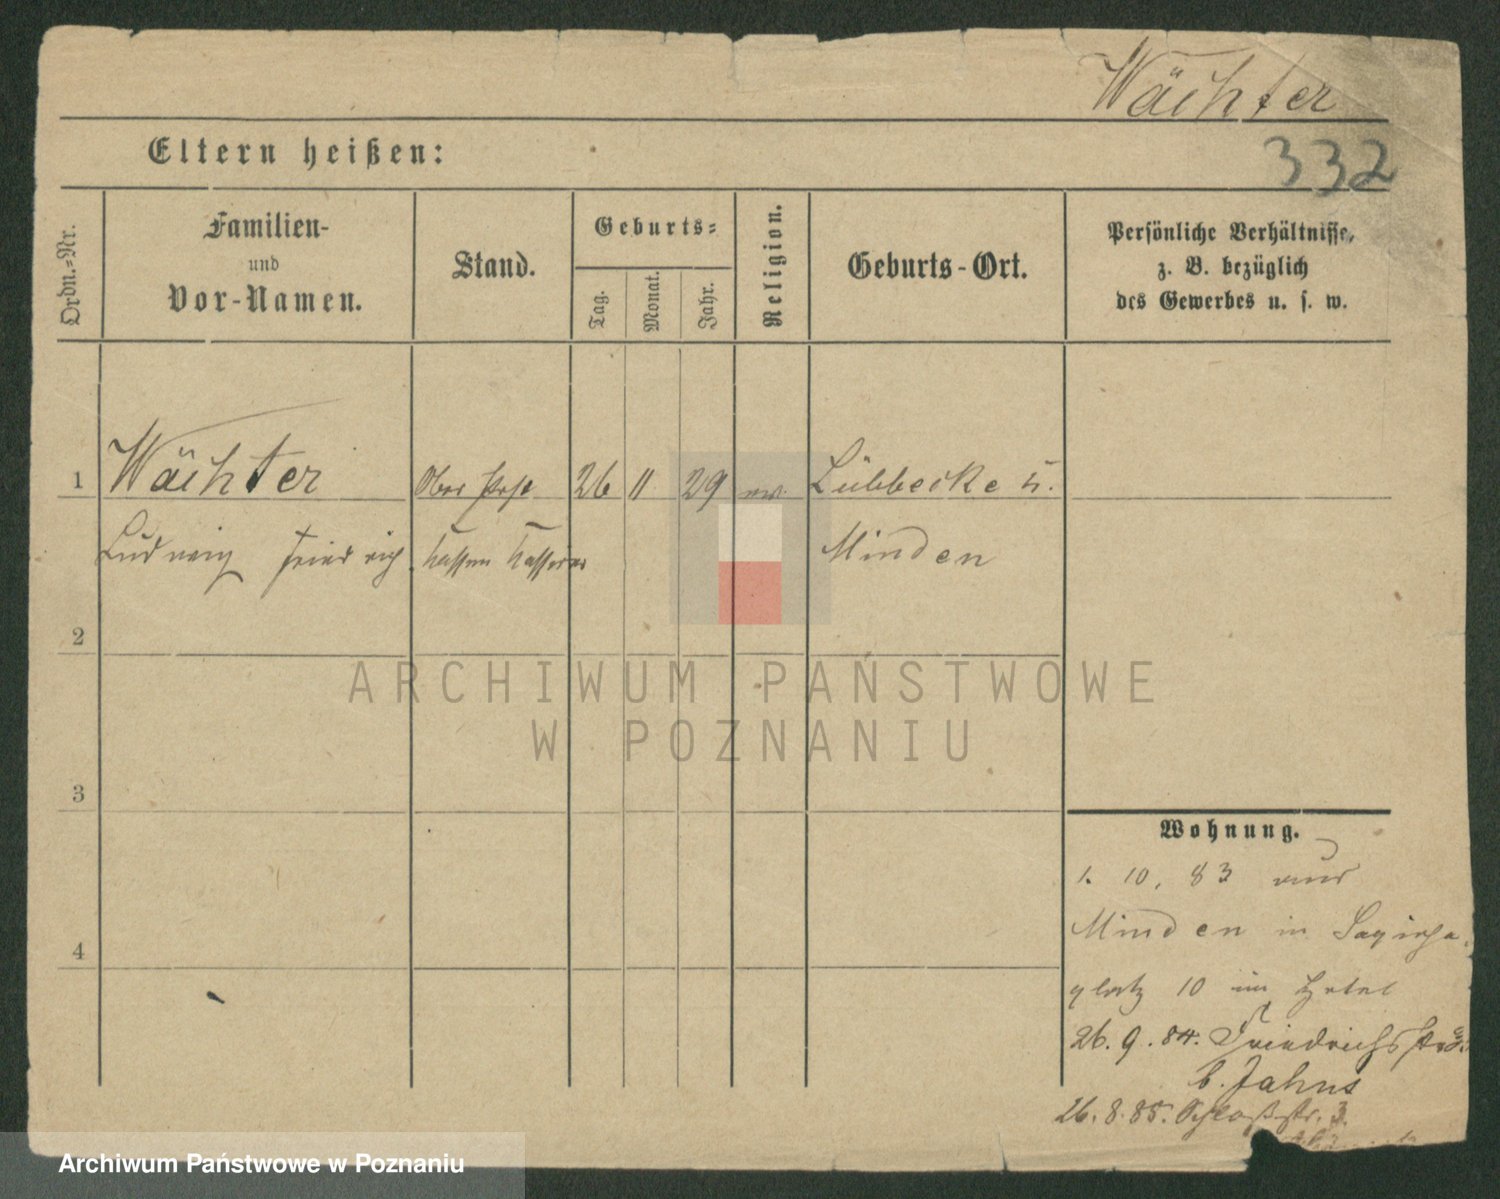 Wächter
Eltern heißen:
332
Ordn.-Nr.
Familien-
und
Vor-Namen.
Stand.
Geburts-
Tag.
Monat.
Jahr.
Religion.
Geburts-Ort.
Persönliche Verhältnisse,
z. B. bezüglich
des Gewerbes u. s. w.
1 Wächter Ober Post 26 11 29 ev. Lübbecke
Ludwig Friedrich Kassen Minden
2
3
4
ARCHIWUM PAŃSTWOWE
W POZNANIU
Wohnung.
1. 10. 83 aus
Minden in
platz 10 im Hotel
26. 9. 84. Friedrichstr.
b. Jahns
26. 8. 85. Schloßstr. 3.
Archiwum Państwowe w Poznaniu